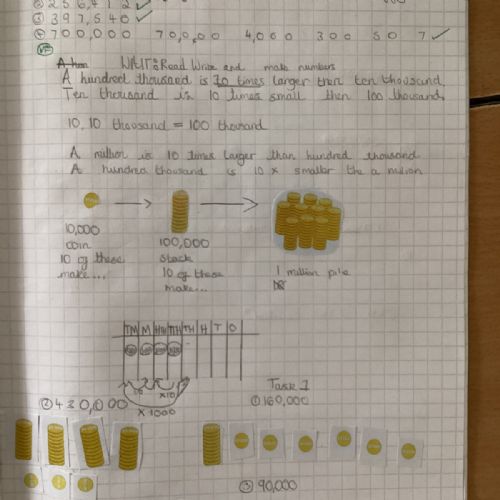 ② 256,412 ✓
③ 397,540 ✓
④ 700,000 70,000 4,000 300 50 7 ✓
VF
WALT: Read Write and make numbers
A hundred thousand is 10 times larger then ten thousand
Ten thousand is 10 times small then 100 thousand,
10, 10 thousand = 100 thousand
A million is 10 times larger than hundred thousand
A hundred thousand is 10 x smaller the a million
10,000
coin
10 of these
make...
100,000
stack
10 of these
make...
1 million pile
TM M HTH TTH TH H T O
x10
x 1000
Task 1
② 430,000
① 160,000
③ 90,000